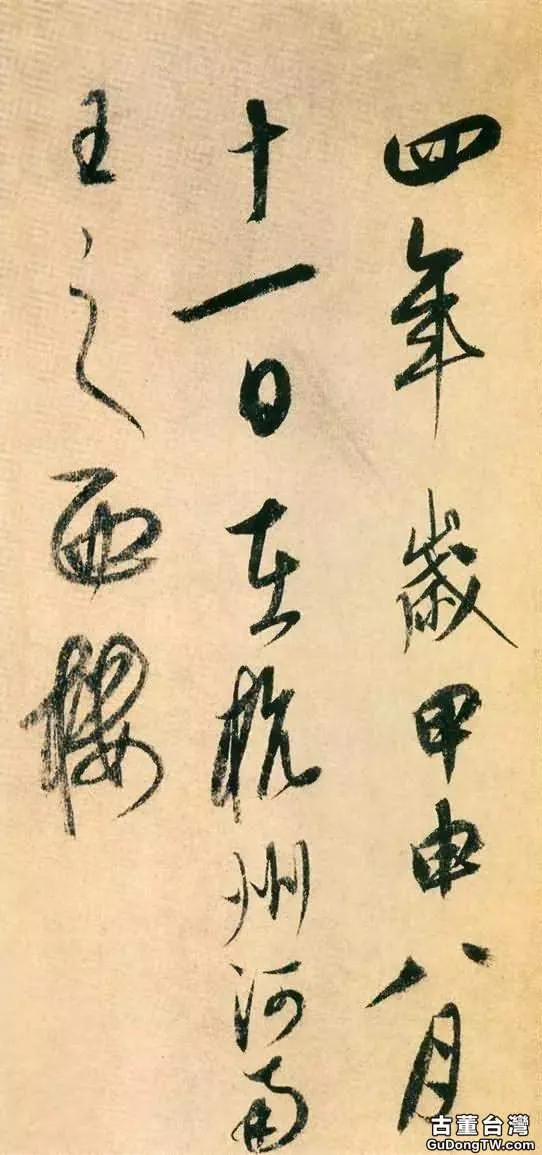 四年歲甲申八月
十一日在杭州河南
王之西樓
古董台灣
GuDongTW.com